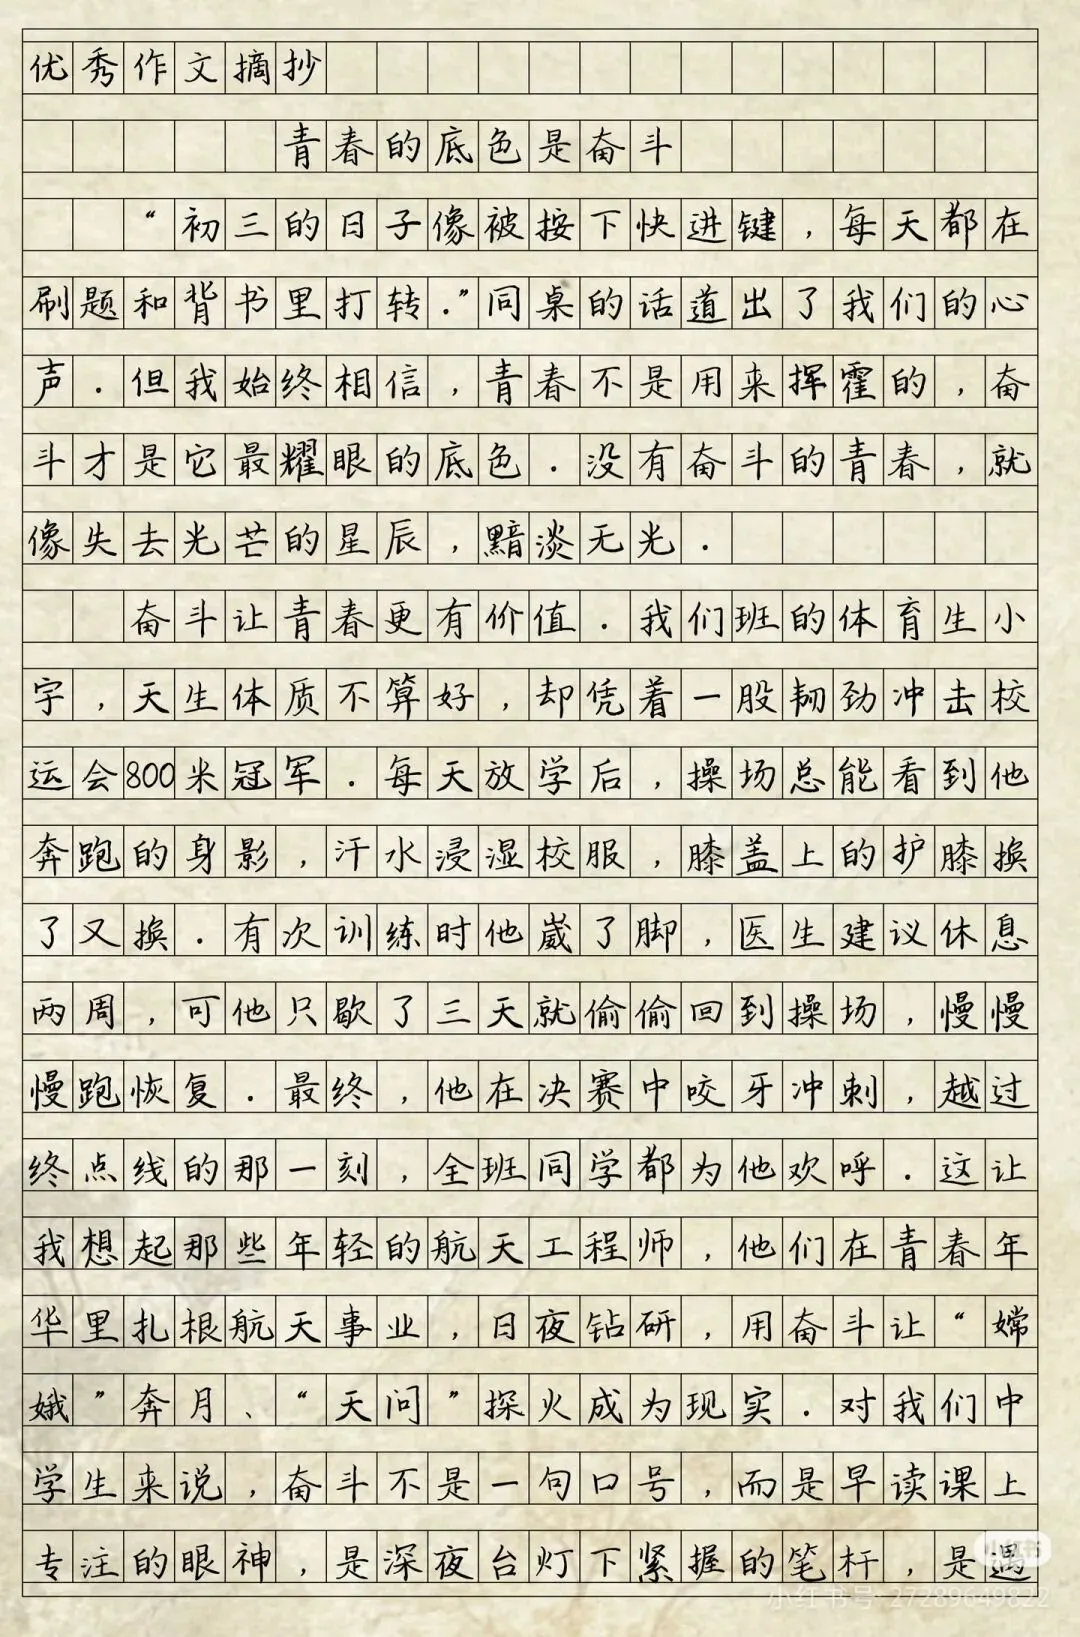 优秀作文摘抄
青春的底色是奋斗
“初三的日子像被按下快进键,每天都在
刷题和背书里打转.”同桌的话道出了我们的心
声.但我始终相信,青春不是用来挥霍的,奋
斗才是它最耀眼的底色.没有奋斗的青春,就
像失去光芒的星辰,黯淡无光.
奋斗让青春更有价值.我们班的体育生小
宇,天生体质不算好,却凭着一股韧劲冲击校
运会800米冠军.每天放学后,操场总能看到他
奔跑的身影,汗水浸湿校服,膝盖上的护膝换
了又换.有次训练时他崴了脚,医生建议休息
两周,可他只歇了三天就偷偷回到操场,慢慢
慢跑恢复.最终,他在决赛中咬牙冲刺,越过
终点线的那一刻,全班同学都为他欢呼.这让
我想起那些年轻的航天工程师,他们在青春年
华里扎根航天事业,日夜钻研,用奋斗让“嫦
娥”奔月、“天问”探火成为现实.对我们中
学生来说,奋斗不是一句口号,而是早读课上
专注的眼神,是深夜台灯下紧握的笔杆,是遇
小红书
小红书号:27289649822